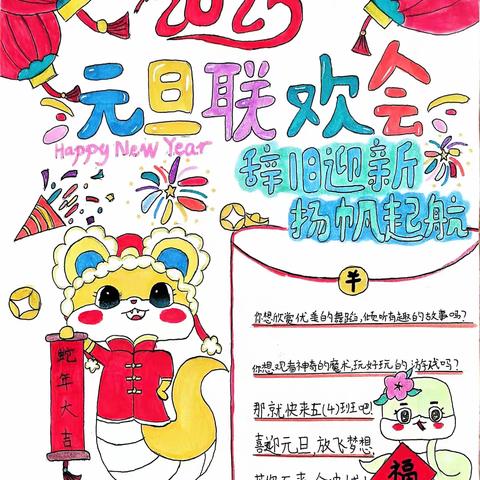 2025
元旦联欢会
Happy New Year
辞旧迎新
扬帆起航
羊
你想欣赏优美的舞蹈,倾听有趣的故事吗?
你想观看神奇的魔术,玩好玩的游戏吗?
那就快来五(4)班吧!
喜迎元旦,放飞梦想,
蛇年大吉
福